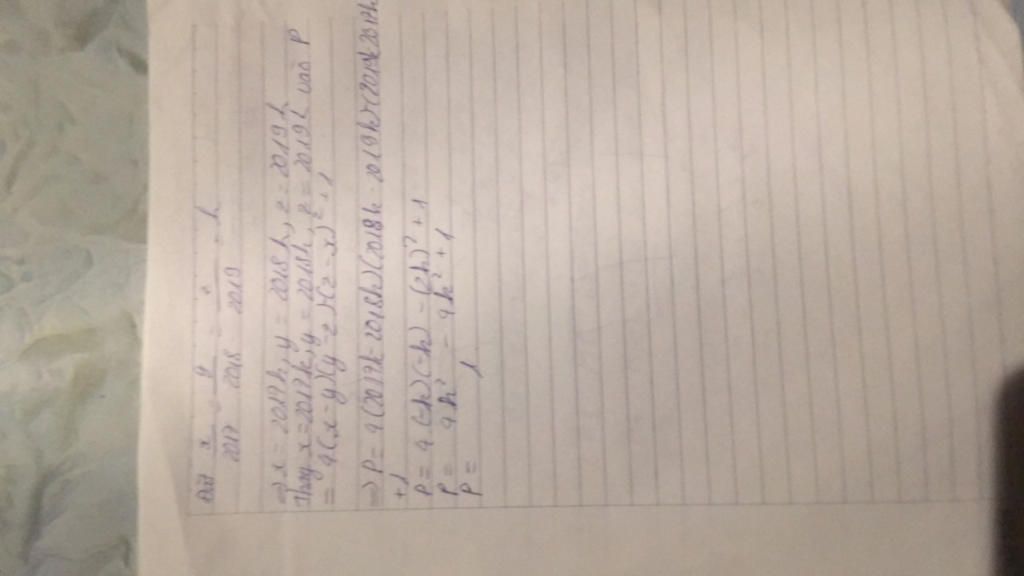 Đặt x/2017 = y/2018 = z/2019 = k
=> x = 2017k, y = 2018k, z = 2019k
Thay x = 2017k, y = 2018k, z = 2019k vào P
= 4(x-y)(y-z)-(z-x)² + 1
=> P = 4(2017k-2018k)(2018k-2019k)
+1
P = 4(-k)(-k) - (2k)² + 1
P = 4k² - 4k² + 1
P = 1